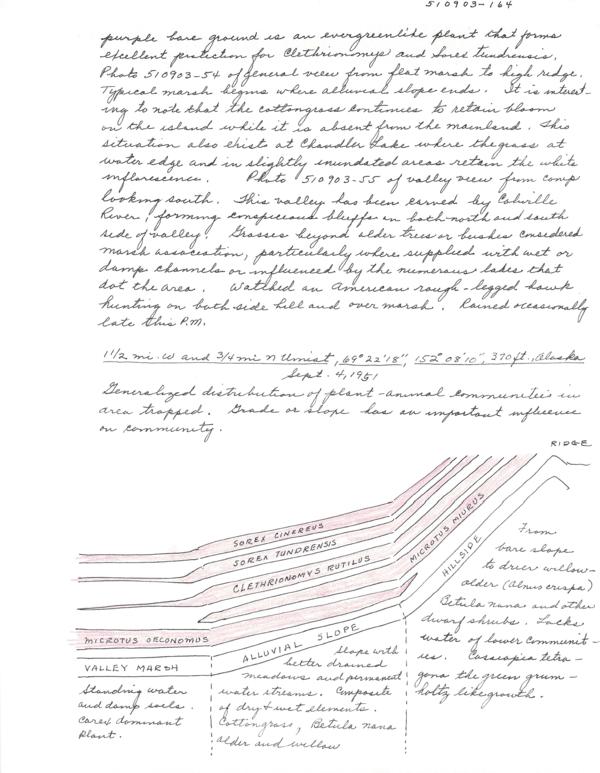 510903-164
purple bare ground is an evergreenlike plant that forms
excellent protection for Clethrionomys and Sorex tundrensis.
Photo 510903-54 of general view from flat marsh to high ridge.
Typical marsh begins where alluvial slope ends. It is interest-
ing to note that the cottongrass continues to retain bloom
on the island while it is absent from the mainland. This
situation also exist at Chandler Lake where the grass at
water edge and in slightly inundated areas retain the white
inflorescence. Photo 510903-55 of valley view from camp
looking south. This valley has been carved by Colville
River, forming conspicuous bluffs on both north and south
side of valley. Grasses beyond alder trees or bushes considered
marsh association, particularly where supplied with wet or
damp channels or influenced by the numerous lakes that
dot the area. Watched an American rough-legged hawk
hunting on both side hill and over marsh. Rained occasionally
late this P.M.
1 1/2 mi. W and 3/4 mi N Umiat, 69° 22' 18", 152° 08' 10", 370 ft., Alaska
Sept. 4, 1951
Generalized distribution of plant-animal communities in
area trapped. Grade or slope has an important influence
on community.
RIDGE
SOREX CINEREUS
SOREX TUNDRENSIS
CLETHRIONOMYS RUTILUS
MICROTUS MIURUS
HILLSIDE
MICROTUS OECONOMUS
ALLUVIAL SLOPE
VALLEY MARSH
Standing water
and damp soils.
Carex dominant
plant.
Slope with
better drained
meadows and permanent
water streams. Composite
of dry & wet elements.
Cottongrass, Betula nana
alder and willow
From
bare slope
to drier willow-
alder (Alnus crispa)
Betula nana and other
dwarf shrubs. Lacks
water of lower communit-
ies. Cassiopia tetra-
gona the green grum-
holtz like growth.